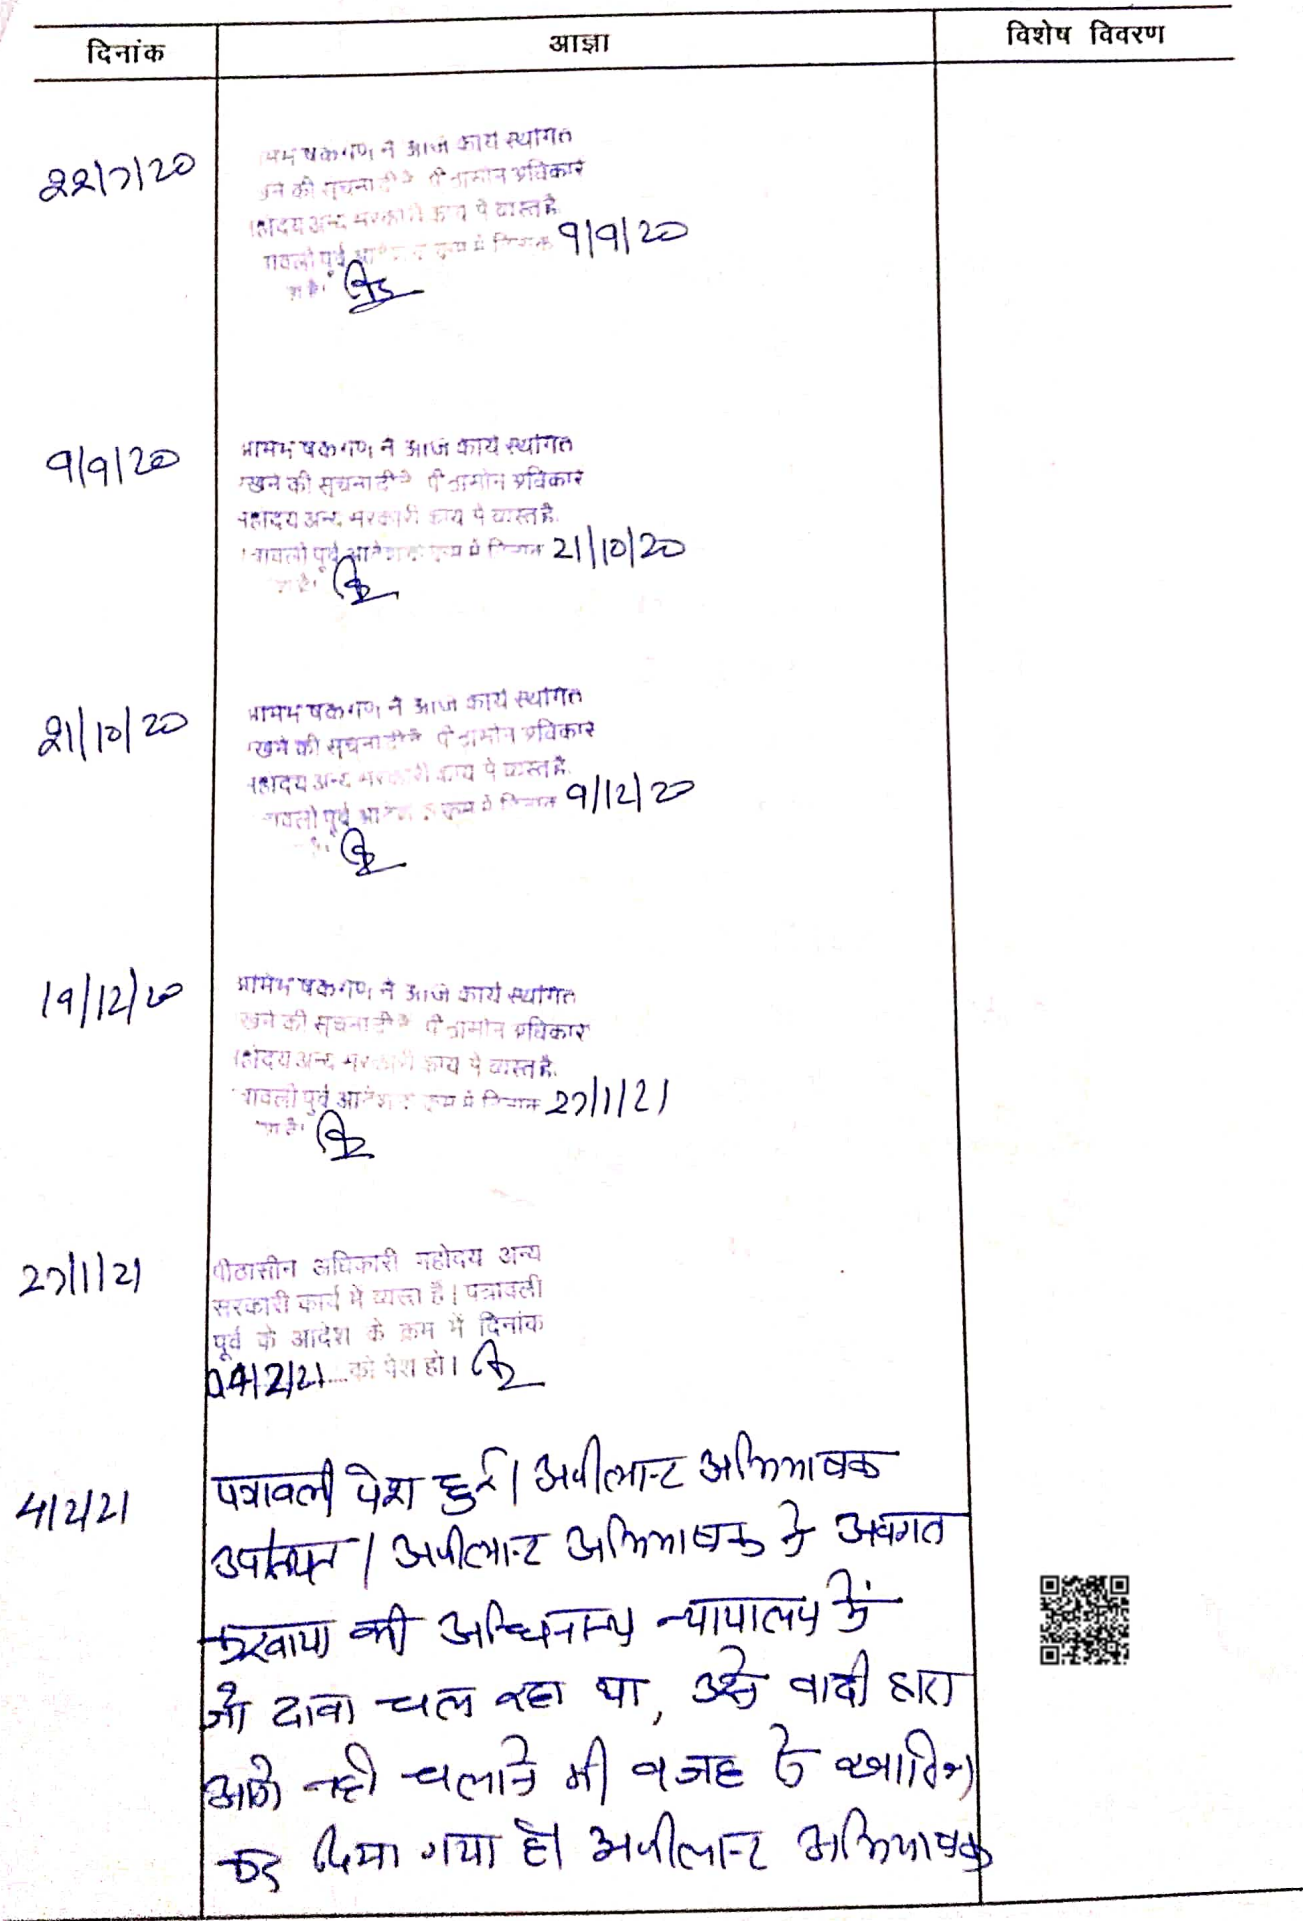 दिनांक आज्ञा विशेष विवरण
22/7/20
ने आज कार्य स्थगित
की सूचना दी
अन्य सरकारी कार्य मे व्यस्त है.
पूर्व 9/9/20
है।
9/9/20
ने आज कार्य स्थगित
रखने की सूचना दी
महोदय अन्य सरकारी कार्य मे व्यस्त है.
पूर्व आदेश के क्रम मे दिनांक 21/10/20
है।
21/10/20
ने आज कार्य स्थगित
रखने की सूचना दी
महोदय अन्य सरकारी कार्य मे व्यस्त है.
पूर्व क्रम मे दिनांक 9/12/20
19/12/20
ने आज कार्य स्थगित
रखने की सूचना दी
महोदय अन्य सरकारी कार्य मे व्यस्त है.
पूर्व आदेश क्रम मे दिनांक 27/1/21
है।
27/1/21
पीठासीन अधिकारी महोदय अन्य
सरकारी कार्य मे व्यस्त है। पत्रावली
पूर्व के आदेश के क्रम में दिनांक
04/2/21....को पेश हो।
4/2/21
पत्रावली पेश हुई। अपीलान्ट अभिभाषक
उपस्थित। अपीलान्ट अभिभाषक ने अवगत
करवाया की अधिनस्थ न्यायालय में
जो दावा चल रहा था, उसे वादी द्वारा
आगे नही चलाने की वजह से खारिज
कर दिया गया है। अपीलान्ट अभिभाषक